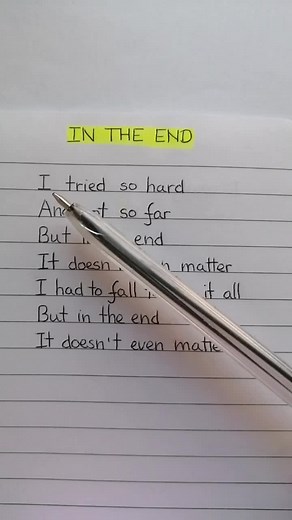 IN THE END
I tried so hard
so far
But end
It doesn matter
I had to fall it all
But in the end
It doesn't even